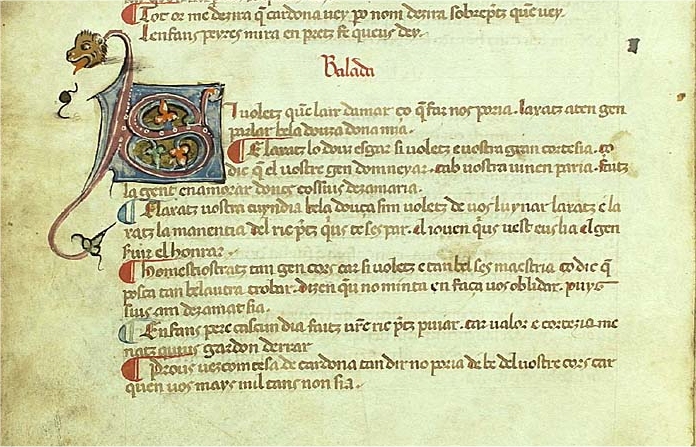 Tot oz me dezira q̃ cardona vey po nom dezira sobreptz quẽ vey.
lenfans peyres mira en pretz se queus dey.
Balada
Si voletz quẽ lair damar ço q̃ far nos poria. laxatz aten gen
parlar bela douza dona mia.
E laxatz lo dous esgar si voletz e vostra gran cortesia. ço
dic q̃ el vostre gen domneyar. cab vostra

la gent enamorar donc̃s cossius dezamaria.
E laxatz vostra cuyndia bela douça sim voletz de vos luynar laxatz e la
xatz la manentia del ric ptz q̃us te ses par. el iouen q̃us vest eus lia el gen
fuir el honrar.
Nomestiostratz tan gen cors car si voletz e tan bel ses maestria co dic q̃
posca tan bel autra trobar. dizen q̃u no minta en faça vos oblidar. puys
sius am dezamat sia.
Enfans pere cascun dia faitz vr̃e ric ptz puiar. car valor e cortezia me
natz gardon derrar
Pros vezcomtesa de cardona tan dir no poria de be del vostre cors car
quen vos mays mil tans non sia.